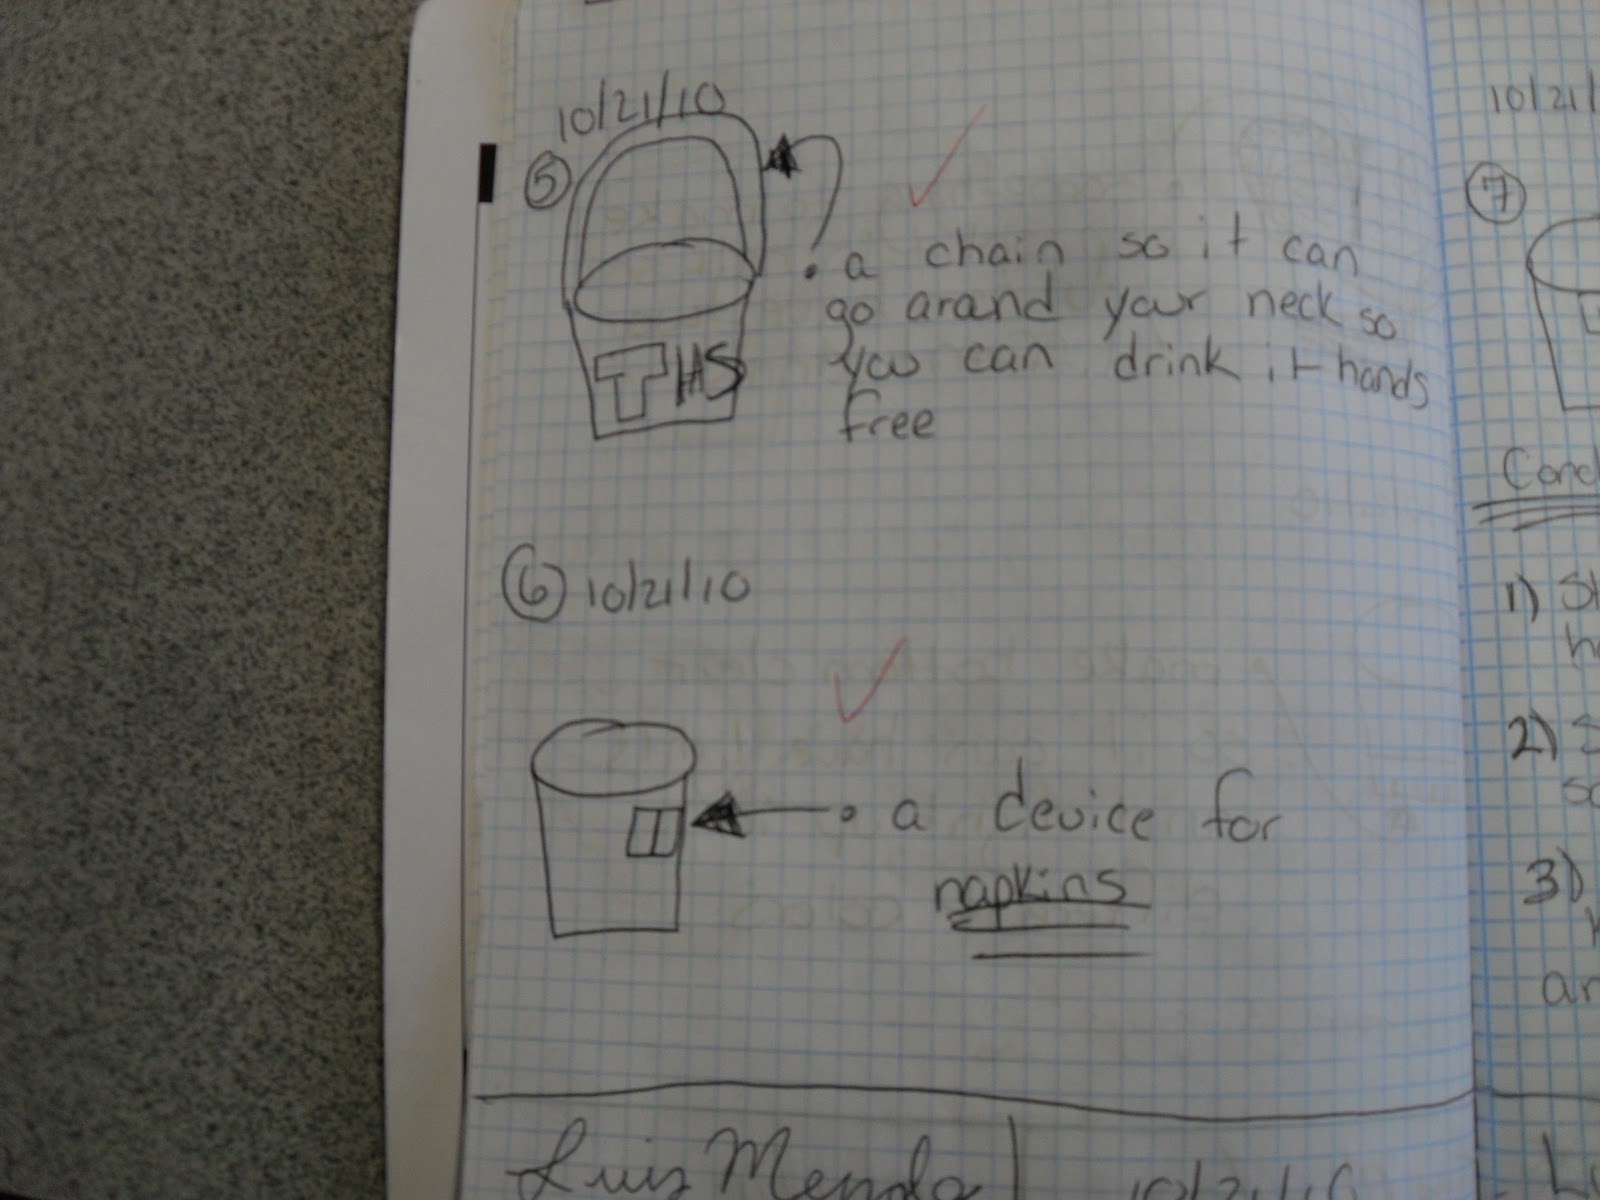 10/21/10
5
a chain so it can
go arand your neck so
you can drink it hands
free
THS
6 10/21/10
a device for
napkins
Luis Menda
10/21/10
10/21/
7
Cond
1) St
h
2) S
so
3)
an